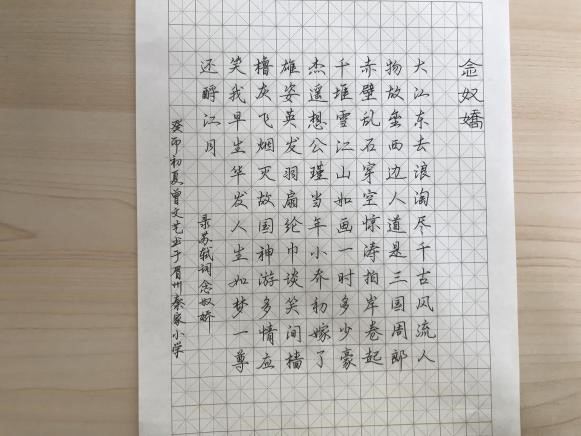 念奴嬌
大江东去浪淘尽千古风流人
物故垒西边人道是三国周郎
赤壁乱石穿空惊涛拍岸卷起
千堆雪江山如画一时多少豪
杰遥想公瑾当年小乔初嫁了
雄姿英发羽扇纶巾谈笑间樯
橹灰飞烟灭故国神游多情应
笑我早生华发人生如梦一尊
还酹江月
录苏轼词念奴娇
癸卯初夏曾文先书于眉州秦家小学